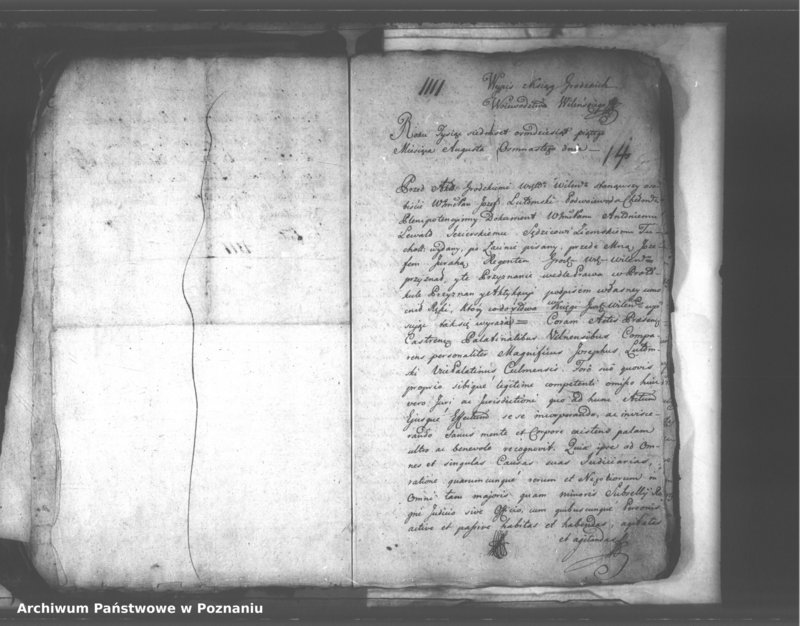 Wypis Xsiąg Grodzkich
Woiewodztwa Wileńskiego
Roku Tysiąc siedmset osmdziesiąt piątego
Miesiąca Augusta Osmnastego dnia —
14
Przed Aktt Grodzkiemi Wdztt Wileńs stanąwszy oso-
biście WJmć Pan Jozef Lutomski Podwoiewoda
Plenipotencyiny Dokument WJmć Panu Antoniemu
Lewald Jezierskiemu Sędzicowi Ziemskiemu Tu-
chols: wydany, po Łacinie pisany, przede Mną Joze-
fem Regentem Grodz: Wdz: Wileńs
przyznał, y te Przyznanie wedle Prawa w Proto-
kule Przyznan y Aktykacyi podpisem własney
Ręki, który co do słowa w Xięgi Grodz: Wileńs wpi-
suiąc tak się wyraża = Coram Actis Praesentibus
Castrensibus Palatinalibus Vilnensibus Compa-
rens personaliter Magnificus Josephus Lutom-
ski VicePalatinus Culmensis. Foro suo quovis
proprio sibique legitime competenti omisso huic
vero Juri ac Jurisdictioni quo ad hunc Actum
Ejusque Effectum se se incorporando, ac invisce-
rando Sanus mente et Corpore existens palam
ultro ac benevole recognovit. Quia ipse ad Om-
nes et singulas Causas suas Judiciarias,
ratione quarumcunque rerum et Negotiorum in
Omni tam majoris quam minoris Subsellij Re-
gni Judicio sive Officio, cum quibuscunque Personis
active et passive habitas et habendas, agitatas
et agitandas
Archiwum Państwowe w Poznaniu